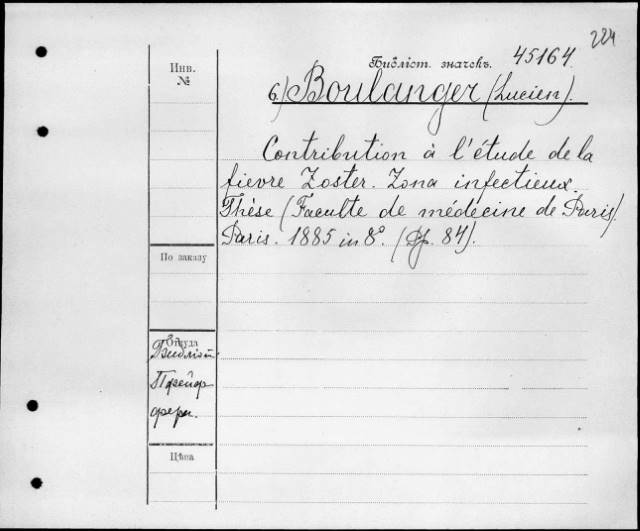 224
Библіот. значекъ. 45164
Инв.
№
6) Boulanger (Lucien).
Contribution à l'étude de la
fievre Zoster. Zona infectieux.
Thèse (Faculte de médecine de Paris)
Paris. 1885 in 8°. (Pp. 84).
По заказу
Откуда
Библіот.
Прейер
фера.
Цѣна